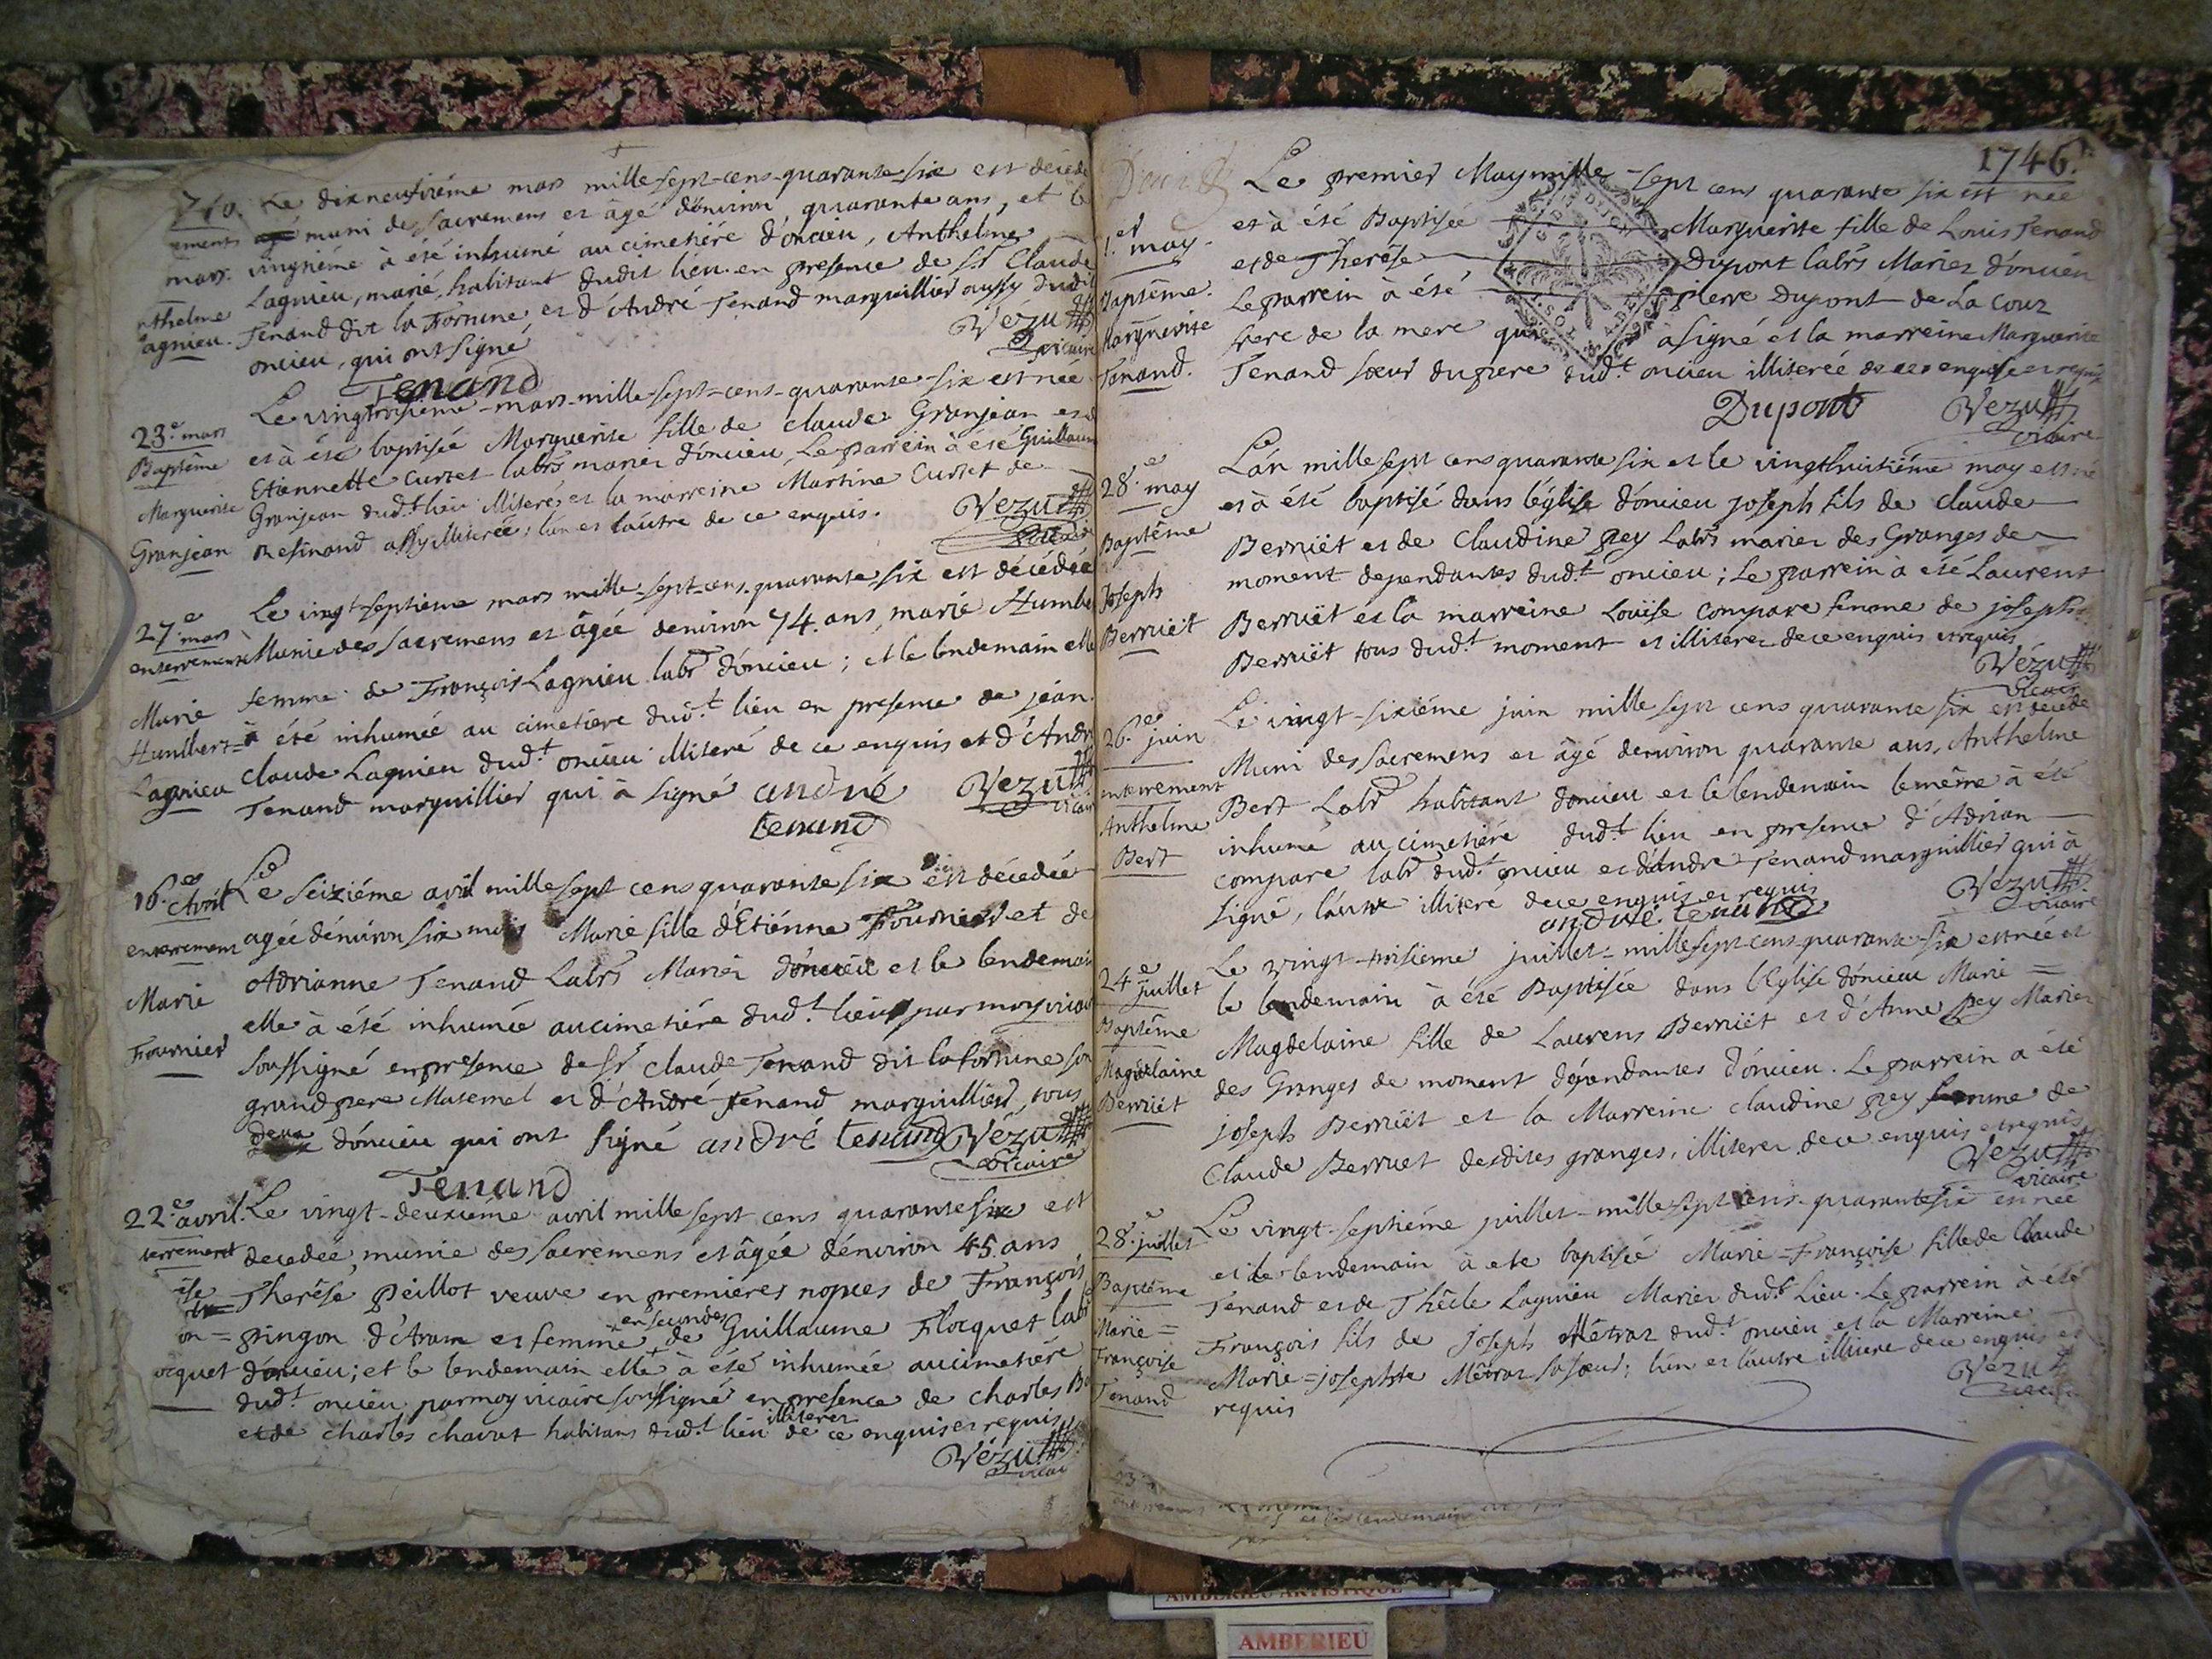 Le dixneufiéme mars mille sept-cens-quarante-six est décédé
muni des sacremens et âgé d'environ quarante ans, et le
vingtiéme à été inhumé au cimetiére d'oncieu, Anthelme
Lagnieu, marié, habitant dudit lieu en presence de Sr Claude
Tenand dit la Fortune et d'André Tenand marguillier aussy dudit
oncieu, qui ont signé
Vezu
vicaire
Tenand
mars.
nthelme
agnieu.
23.e mars
Baptême
Marguerite
Granjean
Le vingtroisiéme-mars-mille-sept-cens-quarante-six est née
et à été baptisée Marguerite fille de Claude Granjean et d
Etiennette Curtet labrs mariez d'oncieu, Le parrein à été Guillaum
Granjean dud.t lieu illiteré, et la marreine Martine Curtet de
Resinand assy illiterée; l'un et lautre de ce enquis.
Vezu
27.e mars
enterrement
Marie
Humbert=
Lagnieu
Le vingt-septieme mars mille-sept-cens-quarante six est décédée
Munie des sacremens et âgée denviron 74. ans, marie Humbe
femme de François Lagnieu labr d'oncieu; et le lendemain elle
à été inhumée au cimetiere dud.t lieu en presence de jean
Claude Lagnieu dud.t oncieu illiteré de ce enquis et d'André
Tenand marguillier qui à signé andré
tenand
Vezu
vicair
16.e Avril
enterrement
Marie
Fournier
Le Seiziéme avril mille sept cens quarante six est décedée
agée d'environ six mois Marie fille d'Etiénne Fournier et de
Adrianne Tenand Labrs Mariez d'oncieu et le lendemain
elle à été inhumée au cimetiére dud.t lieu par moy vicair
soussigné en presence de Sr Claude Tenand dit la fortune son
grand pere Maternel et d'André Tenand marguillier, tous
deux d'oncieu qui ont signé andré tenand Vezu
vicaire
Tenand
22.e avril.
terrement
ocquet
Le vingt-deuxiéme avril mille sept cens quarante six est
decedée, munie des sacremens et âgée d'environ 45 ans
Therése Peillot veuve en premieres nopces de François
pingon d'Aram et femme en secondes de Guillaume Flocquet labr
d'oncieu; et le lendemain elle à été inhumée au cimetiére
dud.t oncieu par moy vicaire soussigné en presence de charles
et de charles chavet habitans dud.t lieu illiterez de ce enquis et requis
Vézu
vicair
1746.
1.er may.
Baptême.
Marguerite
Tenand.
Le premier May mille-sept cens quarante six est née
et à été Baptisée Marguerite fille de Louis Tenand
et de Therése Dupont labrs Mariez d'oncieu
Le parrein à été pierre Dupont de La Cour
frere de la mere qui à signé et la marreine Marguerite
Tenand sœur du pere dud.t oncieu illiterée de ce enquise et requise
Dupont Vezu
vicaire
28.e may
Baptême
Joseph
Berruët
L'an mille sept cens quarante six et le vingthuitiéme may est né
et à été baptisé dans l'église d'oncieu joseph fils de claude
Berruët et de Claudine Pey Labrs mariez des Granges de
moment dependantes dud.t oncieu; Le parrein à été Laurent
Berruët et la marreine Louïse Compare femme de joseph
Berruët tous dud.t moment et illiterez de ce enquis et requis
Vézu
vicair
26.e juin
enterrement
Anthelme
Bert
Le vingt-sixiéme juin mille sept cens quarante six est décédé
Muni des sacremens et âgé denviron quarante ans, Anthelme
Bert Labr habitant d'oncieu et le lendemain le même à été
inhumé au cimetiére dud.t lieu en presence d'Adrian
compare labr dud.t oncieu et d'Andre Tenand marguillier qui à
signé, l'autre illiteré de ce enquis et requis
andré tenand
Vezu
vicaire
24.e juillet
Baptême
Magdelaine
Berruët
Le vingt-troisieme juillet-mille sept-cens-quarante-six est née et
le lendemain à été Baptisée dans l'Eglise d'oncieu Marie=
Magdelaine fille de Laurens Berruët et d'Anne Pey Mariez
des Granges de moment dépendantes d'oncieu. Le parrein a été
joseph Berruët et la Marreine claudine pey femme de
Claude Berruet desdites granges, illiterez de ce enquis et requis
Vezu
vicaire
28.e juillet
Baptême
Marie=
Françoise
Tenand
Le vingt-septiéme juillet-mille sept cens-quarante six est née
et le lendemain à eté baptisée Marie=Françoise fille de Claude
Tenand et de Thécle Lagnieu Mariez dud.t Lieu. Le parrein à été
François fils de Joseph Métraz dud.t oncieu et la Marreine
Marie=josephte Métraz sa sœur; l'un et l'autre illiteré de ce enquis et
requis
Vezu
AMBERIEU ARTISTIQUE
AMBERIEU